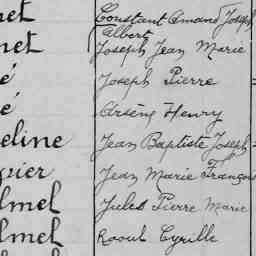 net Constant Amand Joseph
Albert
net Joseph Jean Marie
é Joseph Pierre
é Arsène Henry
eline Jean Baptiste Joseph
pier Jean Marie François
lmel Jules Pierre Marie
lmel Raoul Cyrille